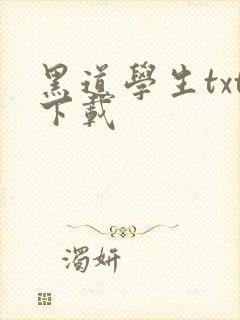 黑道學生txt
下載
濁妍